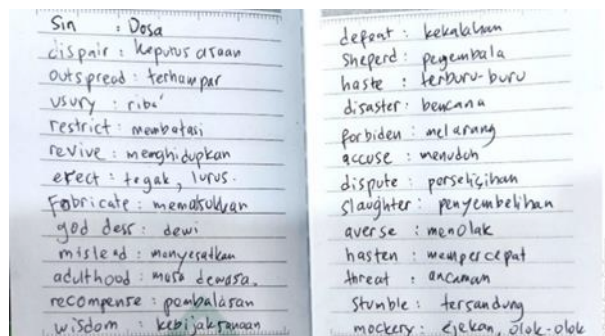 Sin : Dosa
dispair : keputus asaan
outspread : terhampar
usury : riba'
restrict : membatasi
revive : menghidupkan
erect : tegak, lurus.
Fabricate : memalsukan
god dess : dewi
mislead : menyesatkan
adulthood : masa dewasa.
recompense : pembalasan
wisdom : kebijaksanaan
defeat : kekalahan
sheperd : pengembala
haste : terburu-buru
disaster : bencana
forbiden : melarang
accuse : menuduh
dispute : perselisihan
slaughter : penyembelihan
averse : menolak
hasten : mempercepat
threat : ancaman
Stumble : tersandung
mockery : ejekan, olok-olok